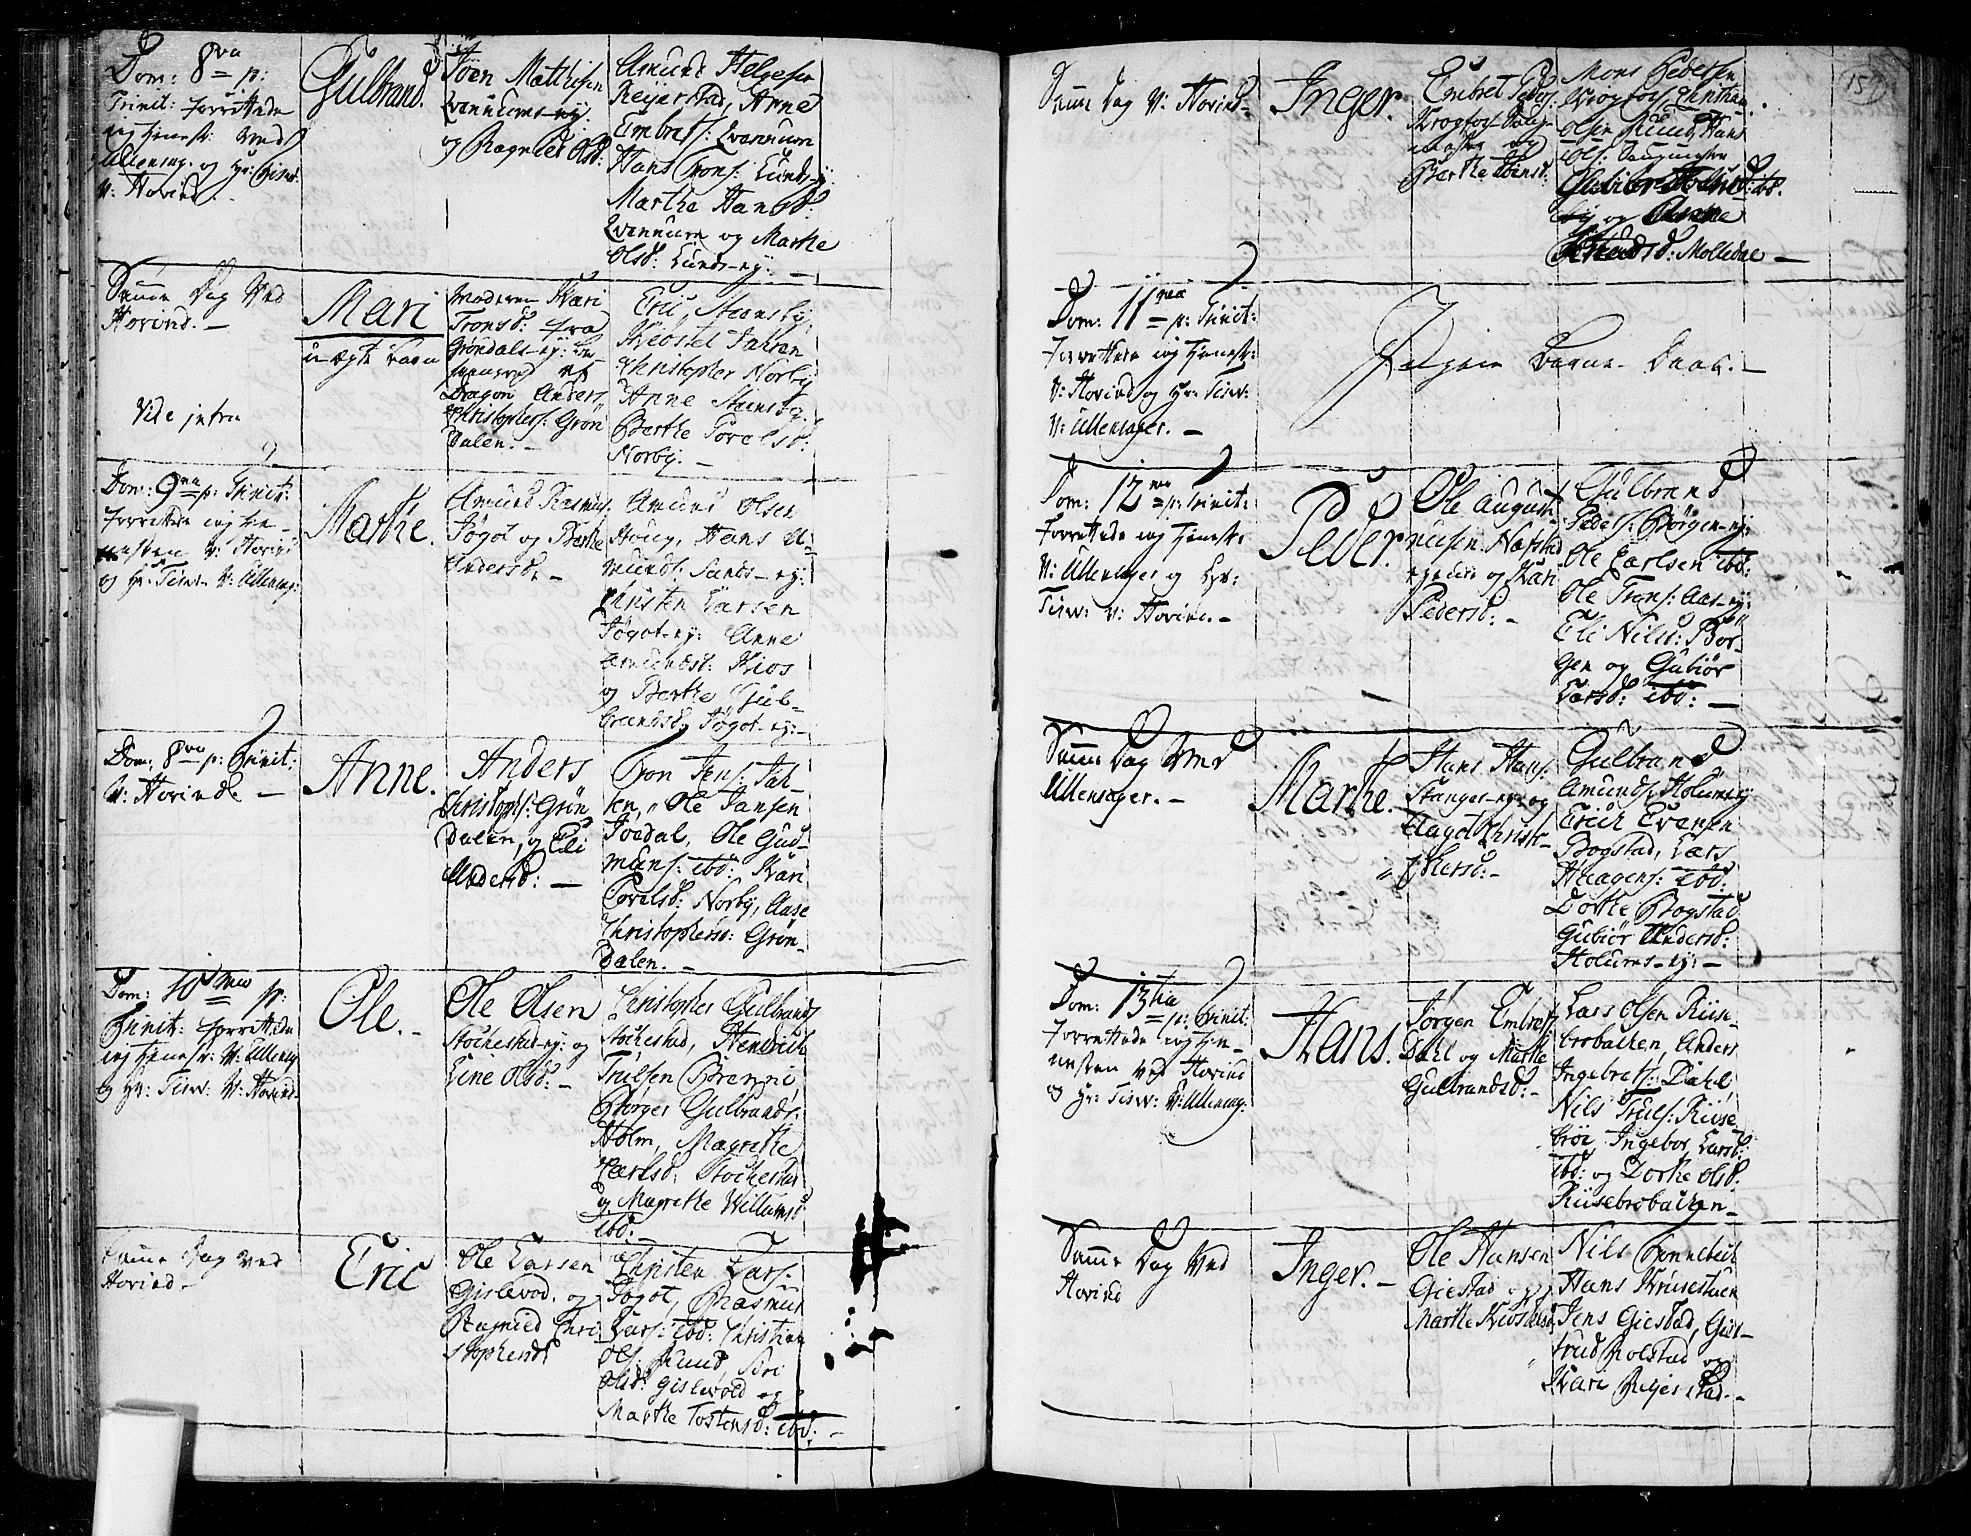 Dom: 8va p:
Trinit: forrettede
jeg tienest: ved
Ullensag. og Hr: Tisw:
V: Hovind.
Gulbrand.
Joen Matthisen
Qvennums-ej:
og Ragnild Olsd:
Amund Helgesen
Reijerstad, Anne
Embrets: Qvennum
Hans Trons: Lunds-ej
Marthe Hansd:
Qvennum og Marthe
Olsd: Lunds-ej: —
Samme Dag Ved
Hovind. —
Vide infra
Mari
u-ægte barn
Moderen Kari
Tronsd: fra
Grøndals-ej: be-
svangred af
Dragon Anders
Christophers: Grøn
Dalen. —
Eric Steensby,
Kiøstel Jahren
Christopher Norby
Anne Steensby
Berthe Torelsd:
Norby. —
Dom: 9na p: Trinit:
forrettede jeg tie-
nesten V: Hovind
og Hr: Tisw- V: Ullensag:
Marthe.
Amund Rasmus.
Jøgot og Berthe
Andersd. —
Amund Olsen
Houg, Hans A-
munds: Sunds-ej:
Christen Larsen
Jøgot-ej: Anne
Amundsd: Kios
og Berthe Gul-
brandsd, Jøgot-ej: —
Dom: 8va p: Trinit:
V: Hovinde —
Anne.
Anders
Christophs: Grøn
Dalen, og Eli
Andersd: —
Tron Jens: Jah-
ren, Ole Jansen
Joedal, Ole Gud-
muns: ibd: Kari
Torelsd: Norby, Aase
Christophersd: Grøn-
Dalen. —
Dom: 10ma p:
Trinit: forrettede
jeg tienest: V: Ullensag
og Hr: Tisw: V: Hovind-
Ole. -
Ole Olsen
Stochestad-ej: og
Line Olsd: —
Christopher Gulbrands
Stochestad, Hendrich
Trulsen Brenni,
Børger Gulbrands:
Holm, Magrethe
Carlsd: Stochestad
og Magrethe Willumsd
ibd: —
Samme Dag ved
Hovind -
Eric
Ole Larsen
Gislevod, og
Ragnild Chri-
stophersd
Christen Lars-
Jøgot, Rasmus
Lars: ibd: Christian
Ols: Ruud, Siri
Olsd: Gislevold og
Marthe Tostensd: ibd: —
157
Samme Dag V: Hovind-
Inger.
Embret Peders:
Krogfos-Saug-
mester og
Berthe Joensd:
Mons Pedersen
Krogfos, Christian
Olsen Ruud, Hans
Ols: Saugmester
ibd.
og
Mølledal —
Dom: 11ma p: Trinit:
forrettede jeg tienest:
V: Hovind og Hr: Tisw:
V: Ullensager. —
Ingen Barne-Daab. —
Dom: 12ma p: Trinit:
forrettede jeg tienest:
V: Ullensager og Hr:
Tisw: V: Hovind. -
Peder.
Ole August-
nusen Nafstad
og Kari
Pedersd: -
Gulbrand
Peders: Børgen-ej:
Ole Carlsen ibd:
Ole Trons: Aas-ej:
Eli Nilsd: Bør-
gen og Gubiør
Larsd: ibd: —
Samme Dag Ved
Ullensager. —
Marthe.
Hans Hans:
Stanger-ej: og
Aagot Christo-
phersd: -
Gulbrand
Amunds: Holumsej
Erich Evensen
Bogstad, Lars
Haagens: ibd:
Dorthe Bogstad
Gubiør Andersd:
Holums-ej: —
Dom: 13tia p: Trinit:
forrettede jeg tie-
nesten ved Hovind
og Hr: Tisw: V: Ullensag:
Hans.
Jørgen Embrets
Dahl og Marthe
Gulbrandsd: -
Lars Olsen Riise-
brobacken Anders
Ingebrets: Dahl,
Nils Truls: Riise
broe Ingebor Larsd:
ibd: og Dorthe Olsd.
Riisebrobacken —
Samme Dag Ved
Hovind
Inger. —
Ole Hansen
Giestad og
Marthe Kiøstelsd
Nils Bonnebech
Hans Krusestuen
Jens Giestad, Gur-
trud Rolstad og
Kari Reijerstad. -